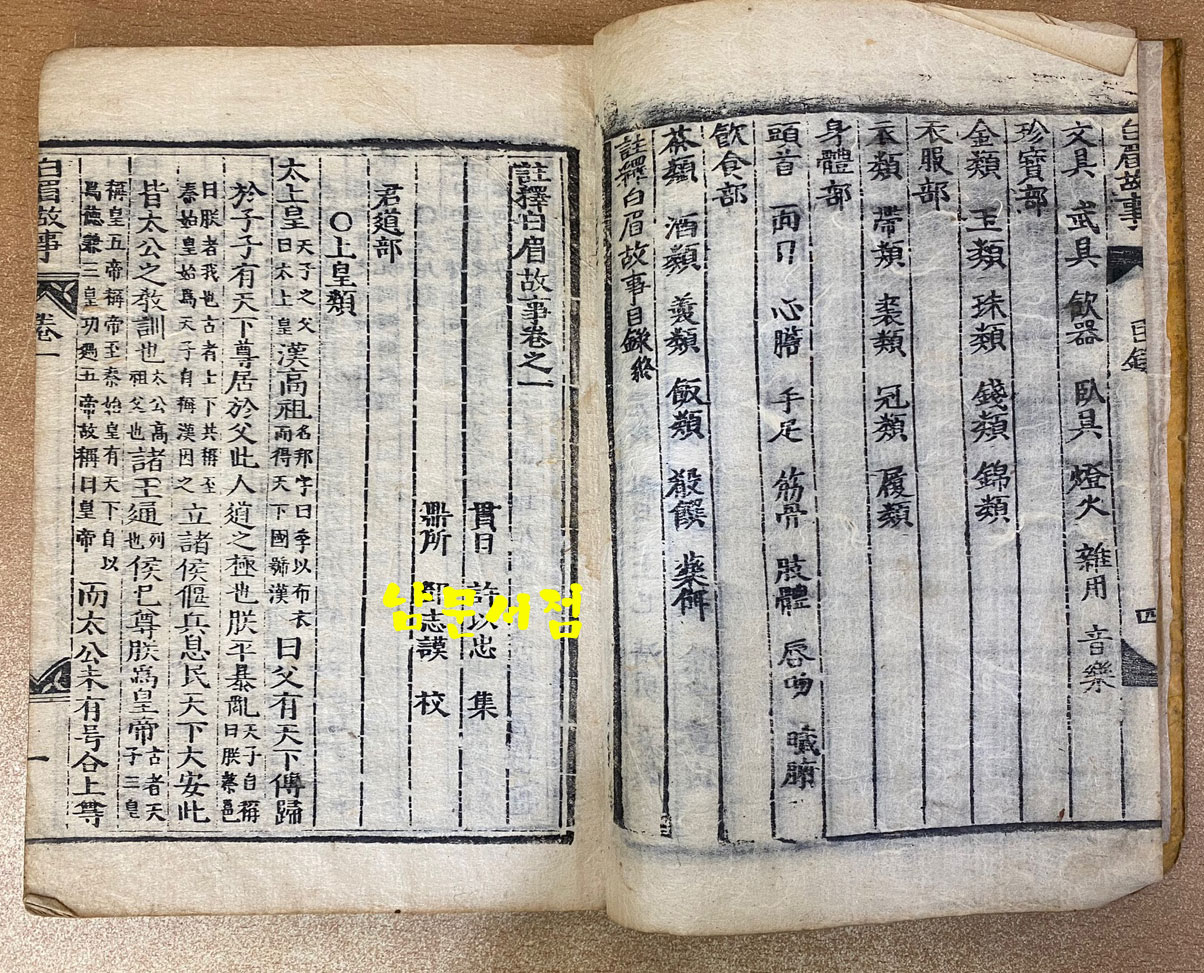 白眉故事 目錄 四
文具 武具 飮器 臥具 燈火 雜用 音樂
珍寶部
金類 玉類 珠類 錢類 錦類
衣服部
衣類 帶類 裘類 冠類 履類
身體部
頭首 面目 心膽 手足 筋骨 肢體 唇吻 臟腑
飮食部
茶類 酒類 羹類 飯類 殽饌 藥餌
註釋白眉故事目錄終
註釋白眉故事卷之一
貫日 許以忠 集
鼎所 志謨 校
君道部
○上皇類
太上皇 天子之父曰太上皇 漢高祖 名邦字曰季以布衣而得天下國號漢 曰父有天下傳歸
於子子有天下尊居於父此人道之極也朕平暴亂 天子自稱曰朕蔡邕
曰朕者我也古者上下共稱至秦始皇始爲天子自稱漢因之 立諸侯偃兵息民天下大安此
皆太公之敎訓也 太公高祖父也 諸王通 列也 侯已尊朕爲皇帝 古者天子三皇
稱皇五帝稱帝至秦始皇有天下自以爲德兼三皇功過五帝故稱曰皇帝 而太公未有号合上尊
白眉故事 卷一 一
남문서점